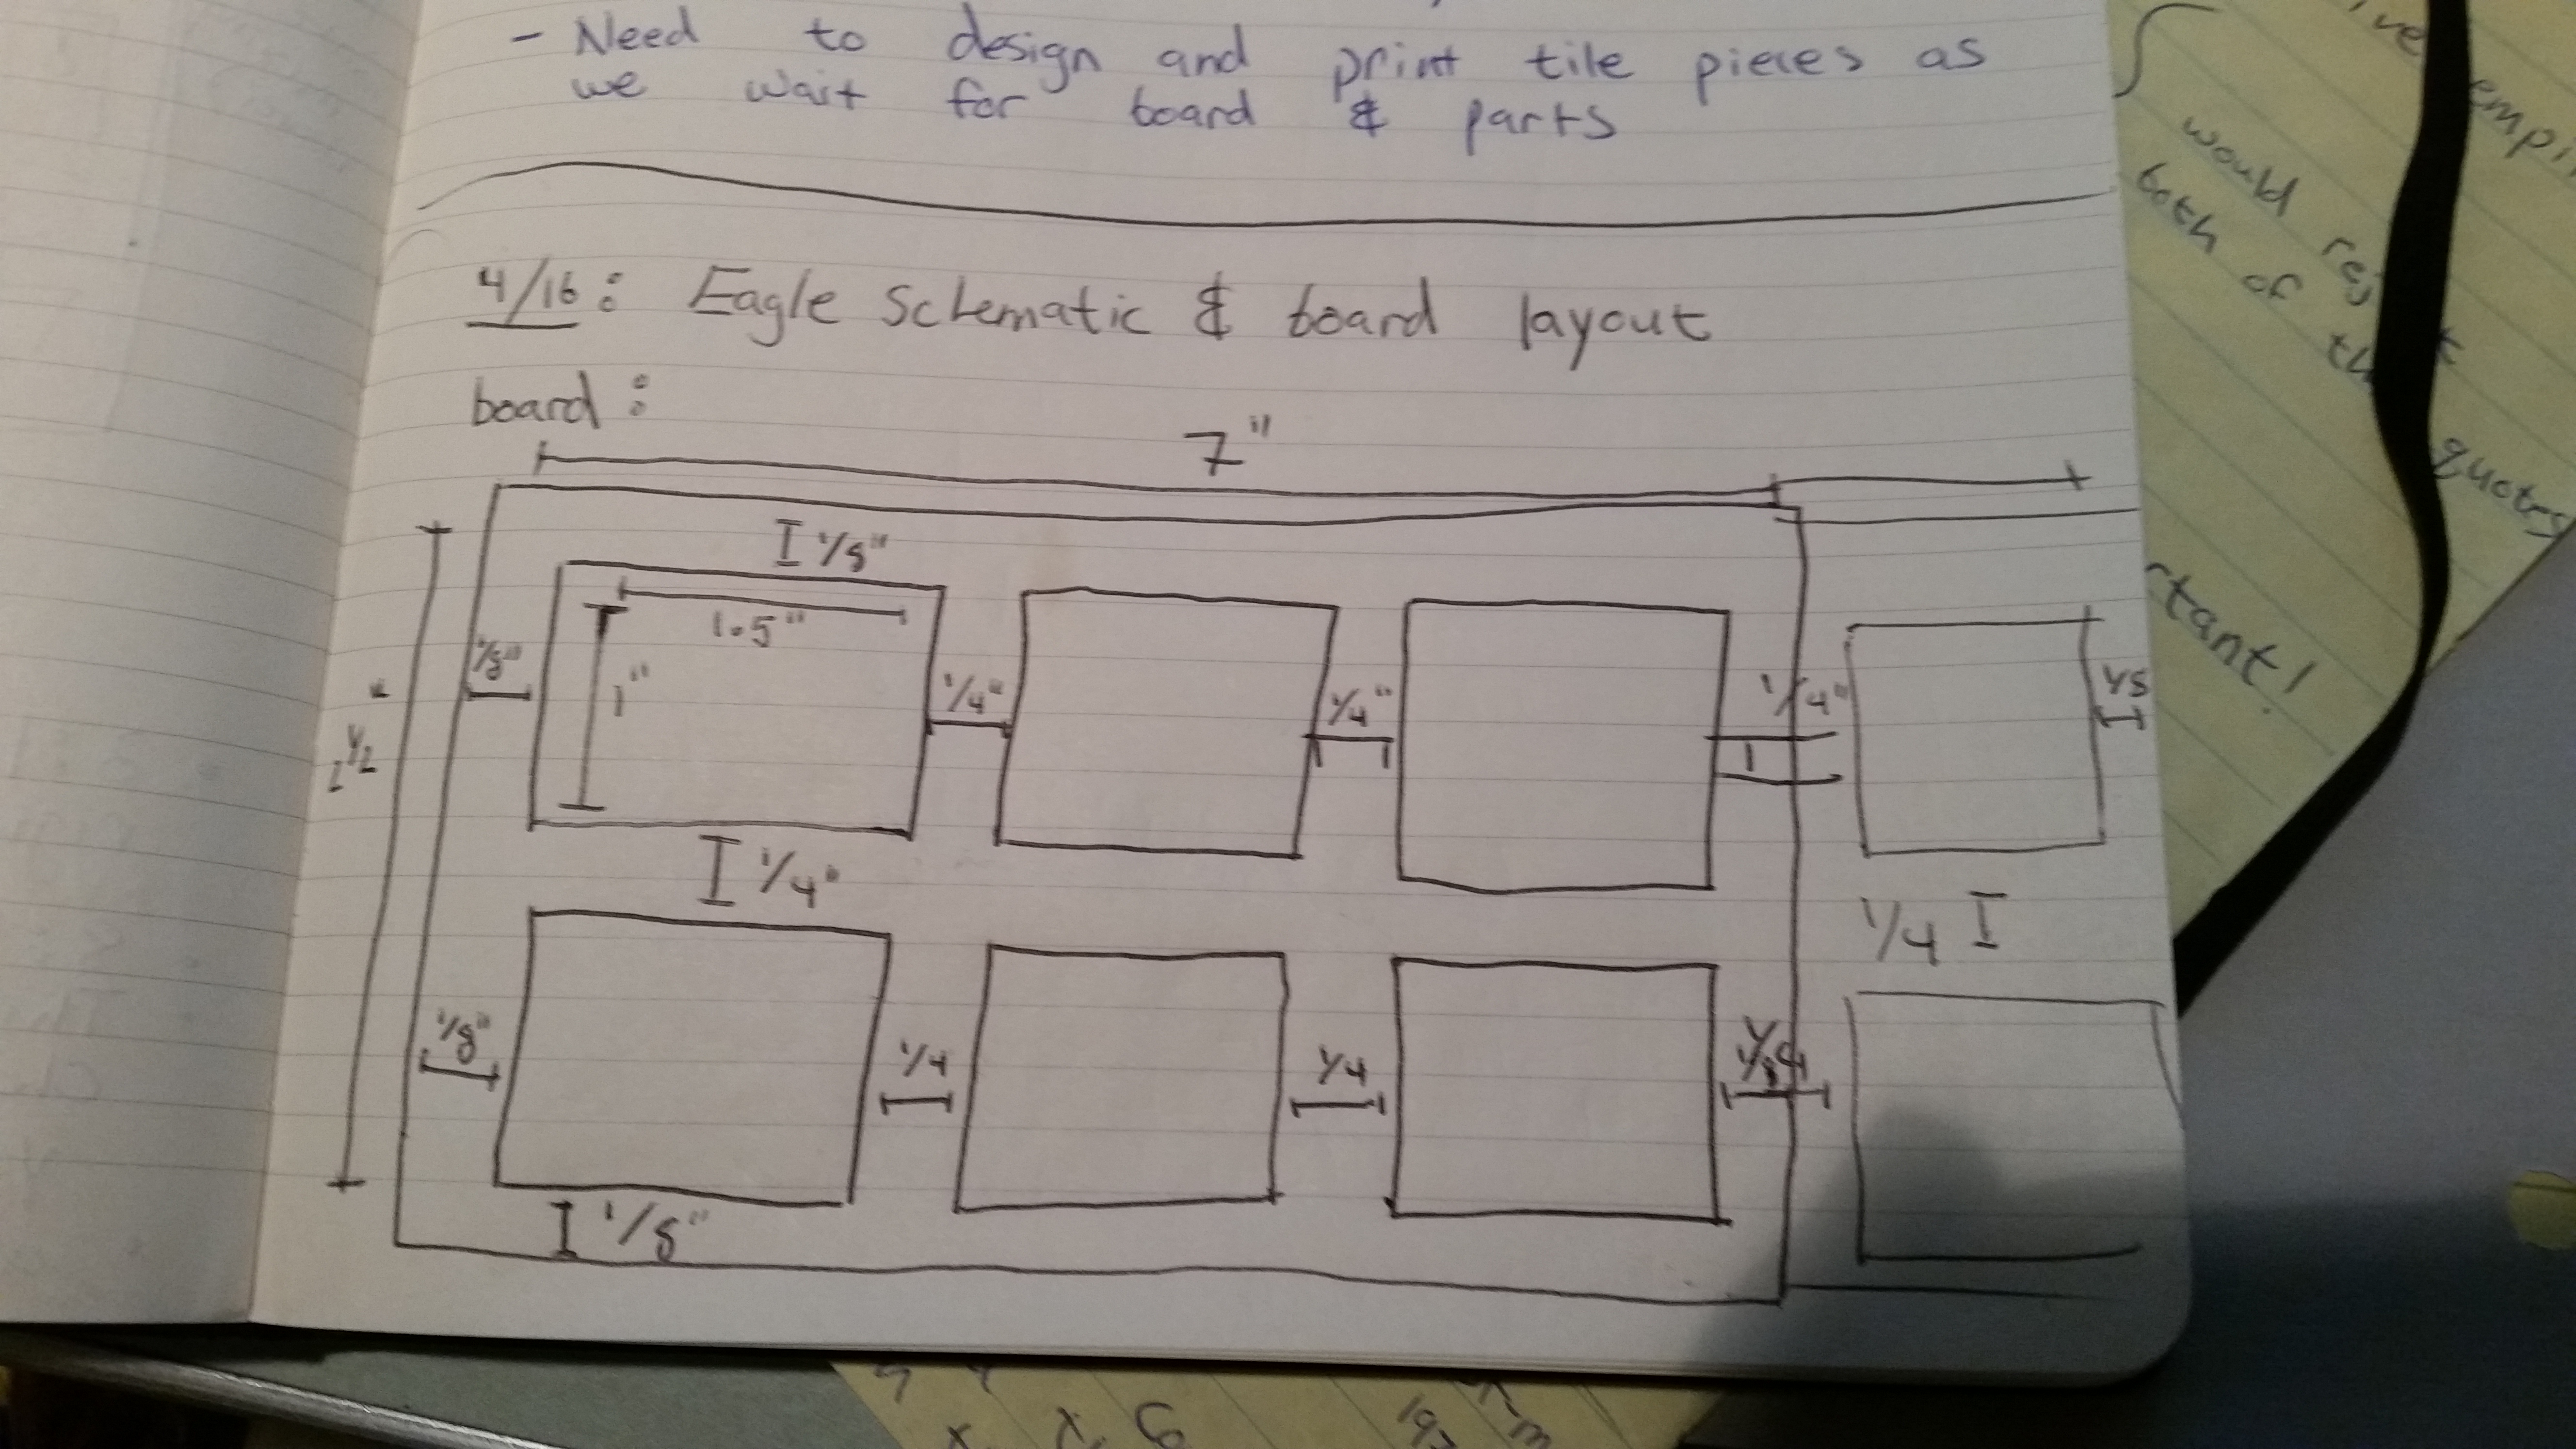 - Need to design and print tile pieces as
we wait for board & parts
4/16: Eagle Schematic & board layout
board:
7"
1/8"
1.5"
1/8" 1" 1/4" 1/4" 1/4" 1/8
2 1/2"
1/4" 1/4
1/8" 1/4 1/4
1/8"
would
both of
quotes